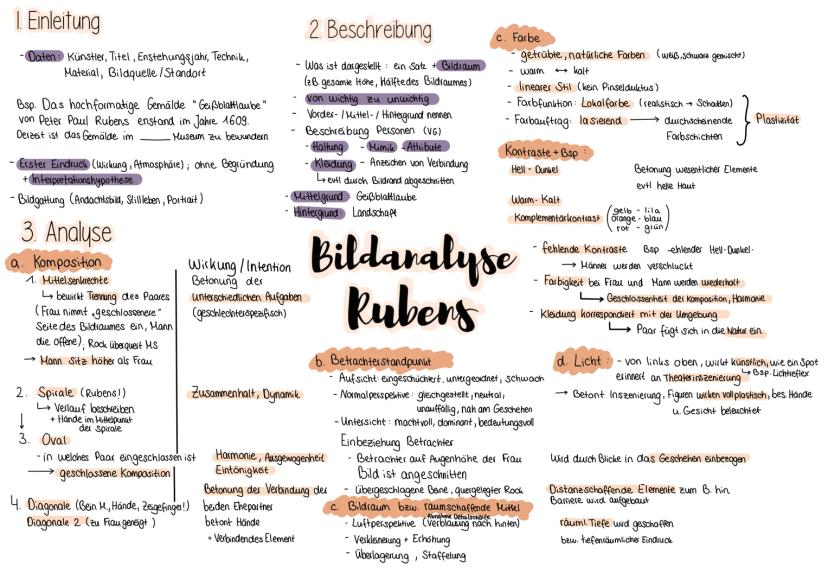 1. Einleitung
- Daten: Künstler, Titel, Enstehungsjahr, Technik,
Material, Bildquelle/Standort
Bsp. Das hochformatige Gemälde "Geißblattlaube"
von Peter Paul Rubens enstand im Jahre 1609.
Derzeit ist das Gemälde im ______ Museum zu bewundern
- Erster Eindruck (Wirkung, Atmosphäre); ohne Begründung
+ Interpretationshypothese
- Bildgattung (Andachtsbild, Stillleben, Portrait)
2. Beschreibung
- Was ist dargestellt: ein Satz + Bildraum
(zB gesamte Höhe, Hälfte des Bildraumes)
- von wichtig zu unwichtig
- Vorder-/Mittel-/Hintergrund nennen
- Beschreibung Personen (VG)
- Haltung - Mimik - Attribute
- Kleidung - Anzeichen von Verbindung
↳ evtl durch Bildrand abgeschnitten
- Mittelgrund: Geißblattlaube
- Hintergrund: Landschaft
c. Farbe
- getrübte, natürliche Farben (weiß, schwarz gemischt)
- warm ↔ kalt
- linearer Stil (kein Pinselduktus)
- Farbfunktion: Lokalfarbe (realistisch → Schatten)
- Farbauftrag: lasierend → durchscheinende
Farbschichten
} Plastizität
Kontraste + Bsp:
Hell - Dunkel Betonung wesentlicher Elemente
evtl helle Haut
Warm - Kalt
Komplementärkontrast (gelb - lila
orange - blau
rot - grün)
- fehlende Kontraste Bsp - ehlender Hell-Dunkel-
→ Männer werden verschluckt
- Farbigkeit bei Frau und Mann werden wiederholt
↳ Geschlossenheit der Komposition, Harmonie
- Kleidung korrespondiert mit der Umgebung
↳ Paar fügt sich in die Natur ein
3. Analyse
a. Komposition
Wirkung / Intention
1. Mittelsenkrechte
↳ bewirkt Trennung des Paares
(Frau nimmt "geschlossenere"
Seite des Bildraumes ein, Mann
die offene), Rock überquert MS
→ Mann sitz höher als Frau
Betonung der
unterschiedlichen Aufgaben
(geschlechterspezifisch)
2. Spirale (Rubens!)
↳ Verlauf beschreiben
+ Hände im Mittelpunkt
der Spirale
Zusammenhalt, Dynamik
3. Oval
- in welches Paar eingeschlossen ist
→ geschlossene Komposition
Harmonie, Ausgewogenheit
Eintönigkeit
4. Diagonale (Bein M., Hände, Zeigefinger!)
Diagonale 2 (zu Frau geneigt)
Betonung der Verbindung der
beiden Ehepartner
betont Hände
• Verbindendes Element
Bildanalyse
Rubens
b. Betrachterstandpunkt
- Aufsicht: eingeschüchtert, untergeordnet, schwach
- Normalperspektive: gleichgestellt, neutral,
unauffällig, nah am Geschehen
- Untersicht: machtvoll, dominant, bedeutungsvoll
Einbeziehung Betrachter
- Betrachter auf Augenhöhe der Frau
Bild ist angeschnitten
Wird durch Blicke in das Geschehen einbezogen
- übergeschlagene Beine, quergelegter Rock
Distanzschaffende Elemente zum B. hin.
Barriere wird aufgebaut
c. Bildraum bzw. raumschaffende Mittel
Abnahme Detailschärfe
- Luftperspektive (Verblauung nach hinten)
- Verkleinerung + Erhöhung
- Überlagerung, Staffelung
räuml. Tiefe wird geschaffen
bzw. tiefenräumlicher Eindruck
d. Licht: - von links oben, wirkt künstlich, wie ein Spot
erinnert an Theaterinszenierung ↳ Bsp. Lichtreflex
→ Betont Inszenierung, Figuren wirken vollplastisch, bes. Hände
u. Gesicht beleuchtet